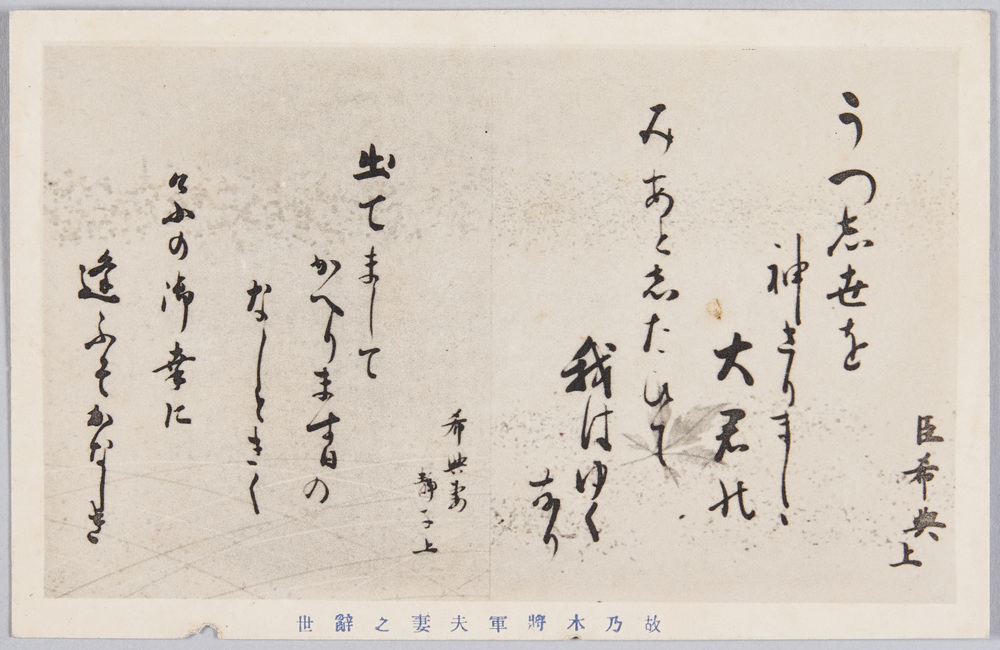 臣希典上
うつ志世を
神さりましゝ
大君乃
みあと志たひて
我はゆく
なり
希典妻
靜子上
出てまして
かへります日の
なしときく
けふの御幸に
逢ふそかなしき
故乃木將軍夫妻之辭世